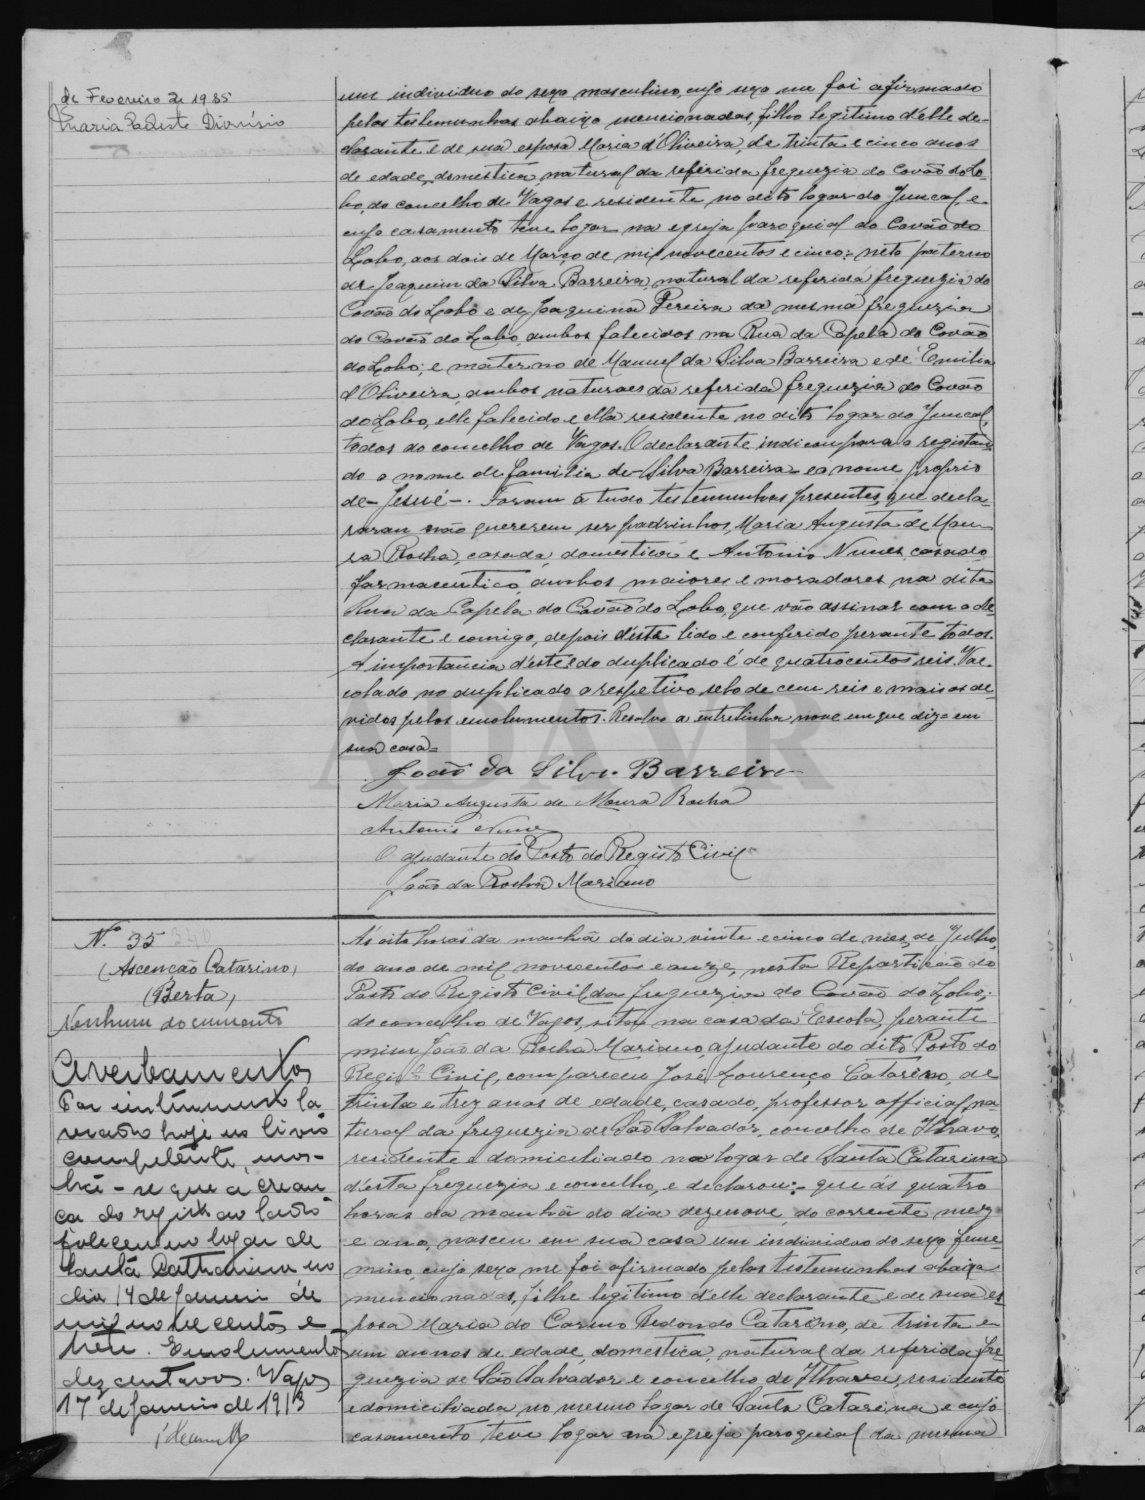 de Fevereiro de 1935
Maria Celeste Dionísio
um individuo do sexo masculino, cujo sexo me foi afirmado
pelas testemunhas abaixo mencionadas, filho legitimo d'elle de-
clarante e de sua esposa Maria d'Oliveira, de trinta e cinco anos
de edade, domestica, natural da referida freguezia do Covão do Lo-
bo, do concelho de Vagos e residente no dito logar do Juncal e
cujo casamento teve logar na egreja paroquial do Covão do
Lobo, aos dois de Março de mil novecentos e cinco; neto paterno
de Joaquim da Silva Barreira, natural da referida freguezia do
Covão do Lobo e de Joaquina Pereira da mesma freguezia
do Covão do Lobo, ambos falecidos na Rua da Capela do Covão
do Lobo; e materno de Manuel da Silva Barreira e de Emilia
d'Oliveira, ambos naturaes da referida freguezia do Covão
do Lobo, elle falecido e ella residente no dito logar do Juncal,
todos do concelho de Vagos. O declarante indicou para o registan-
do o nome de familia de Silva Barreira e o nome proprio
de - Jesué -. Foram a tudo testemunhas presentes, que decla-
raram não quererem ser padrinhos, Maria Augusta de Mou-
ra Rocha, casada, domestica e Antonio Nunes, casado,
farmaceutico, ambos maiores e moradores na dita
Rua da Capela do Covão do Lobo, que vão assinar com o de-
clarante e comigo, depois d'este lido e conferido perante todos.
A importancia d'este e do duplicado é de quatrocentos reis. Vae
colado no duplicado o respetivo selo de cem reis e mais os de-
vidos pelos emolumentos. Resalvo a entrelinha nove em que diz = em
sua casa =
João da Silva Barreira
Maria Augusta de Moura Rocha
Antonio Nunes
O ajudante do Posto do Registo Civil
João da Rocha Mariano
N.º 35
(Ascenção Catarino)
(Berta)
Nenhum documento
Averbamentos
Por instrumento la
vrado hoje no livro
competente, mos-
tra-se que a crean
ça do registo ao lado
faleceu no logar de
Santa Catharina no
dia 14 de janeiro de
mil novecentos e
treze. Emolumentos
dez centavos. Vagos
17 de Janeiro de 1913
Ás oito horas da manhã do dia vinte e cinco do mez de Julho,
do ano de mil novecentos e onze, nesta Repartição do
Posto do Registo Civil da freguezia do Covão do Lobo,
do concelho de Vagos, sita na casa da Escola, perante
mim João da Rocha Mariano, ajudante do dito Posto do
Registo Civil, compareceu José Lourenço Catarino, de
trinta e trez anos de edade, casado, professor official, na-
tural da freguezia de São Salvador, concelho de Ilhavo,
residente e domiciliado no logar de Santa Catarina
d'esta freguezia e concelho, e declarou: - que ás quatro
horas da manhã do dia dezenove, do corrente mez
e ano, nasceu em sua casa um individuo do sexo feme-
nino, cujo sexo me foi afirmado pelas testemunhas abaixo
mencionadas, filho legitimo d'elle declarante e de sua es
posa Maria do Carmo Redondo Catarino, de trinta e
um annos de edade, domestica, natural da referida fre-
guezia de São Salvador e concelho de Ilhavo, residente
e domiciliada, no mesmo logar de Santa Catarina e cujo
casamento teve logar na egreja paroquial da mesma
ADAVR